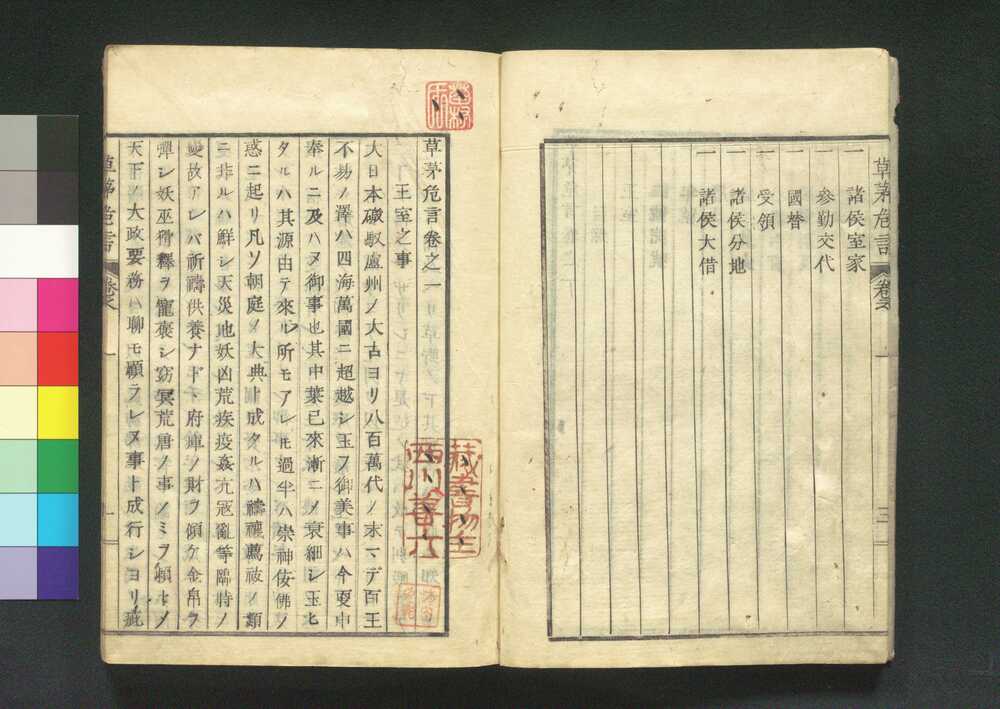 一 諸侯室家
一 參勤交代
一 國替
一 受領
一 諸侯分地
一 諸侯大借
草茅危言
草茅危言卷之一
王室之事
大日本磤馭盧州ノ大古ヨリ八百萬代ノ末マデ百王
不易ノ澤ハ四海萬國ニ超越シ玉フ御美事ハ今更申
奉ルニ及ハヌ御事也其中葉已來漸ニノ衰細シ玉ヒ
タルハ其源由テ來ル所モアレ𪜈過半ハ崇神侫佛ノ
惑ニ起リ凡ソ朝庭ノ大典ト成タルハ禱禳薦祓ノ類
ニ非ルハ鮮シ天災地妖凶荒疾疫姦宄寇亂等臨時ノ
變故アレバ祈禱供養ナド丶府庫ノ財ヲ傾ケ金帛ヲ
殫シ妖巫猾釋ヲ寵褒シ窈冥荒唐ノ事ノミヲ頼ヒノ
天下ノ大政要務ハ聊モ顧ラレヌ事ト成行シヨリ疵
草茅危言